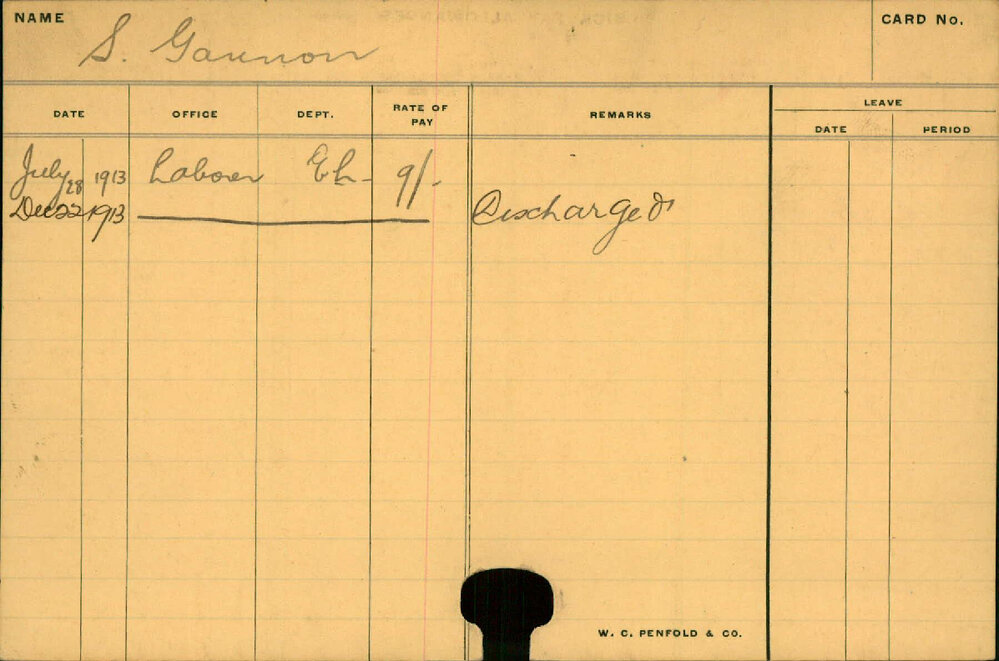 NAME
S. Gannon
CARD No.
DATE OFFICE DEPT. RATE OF PAY REMARKS LEAVE
DATE PERIOD
July 28 1913 Laborer 9/-
Dec 22 1913 Discharged
W. C. PENFOLD & CO.